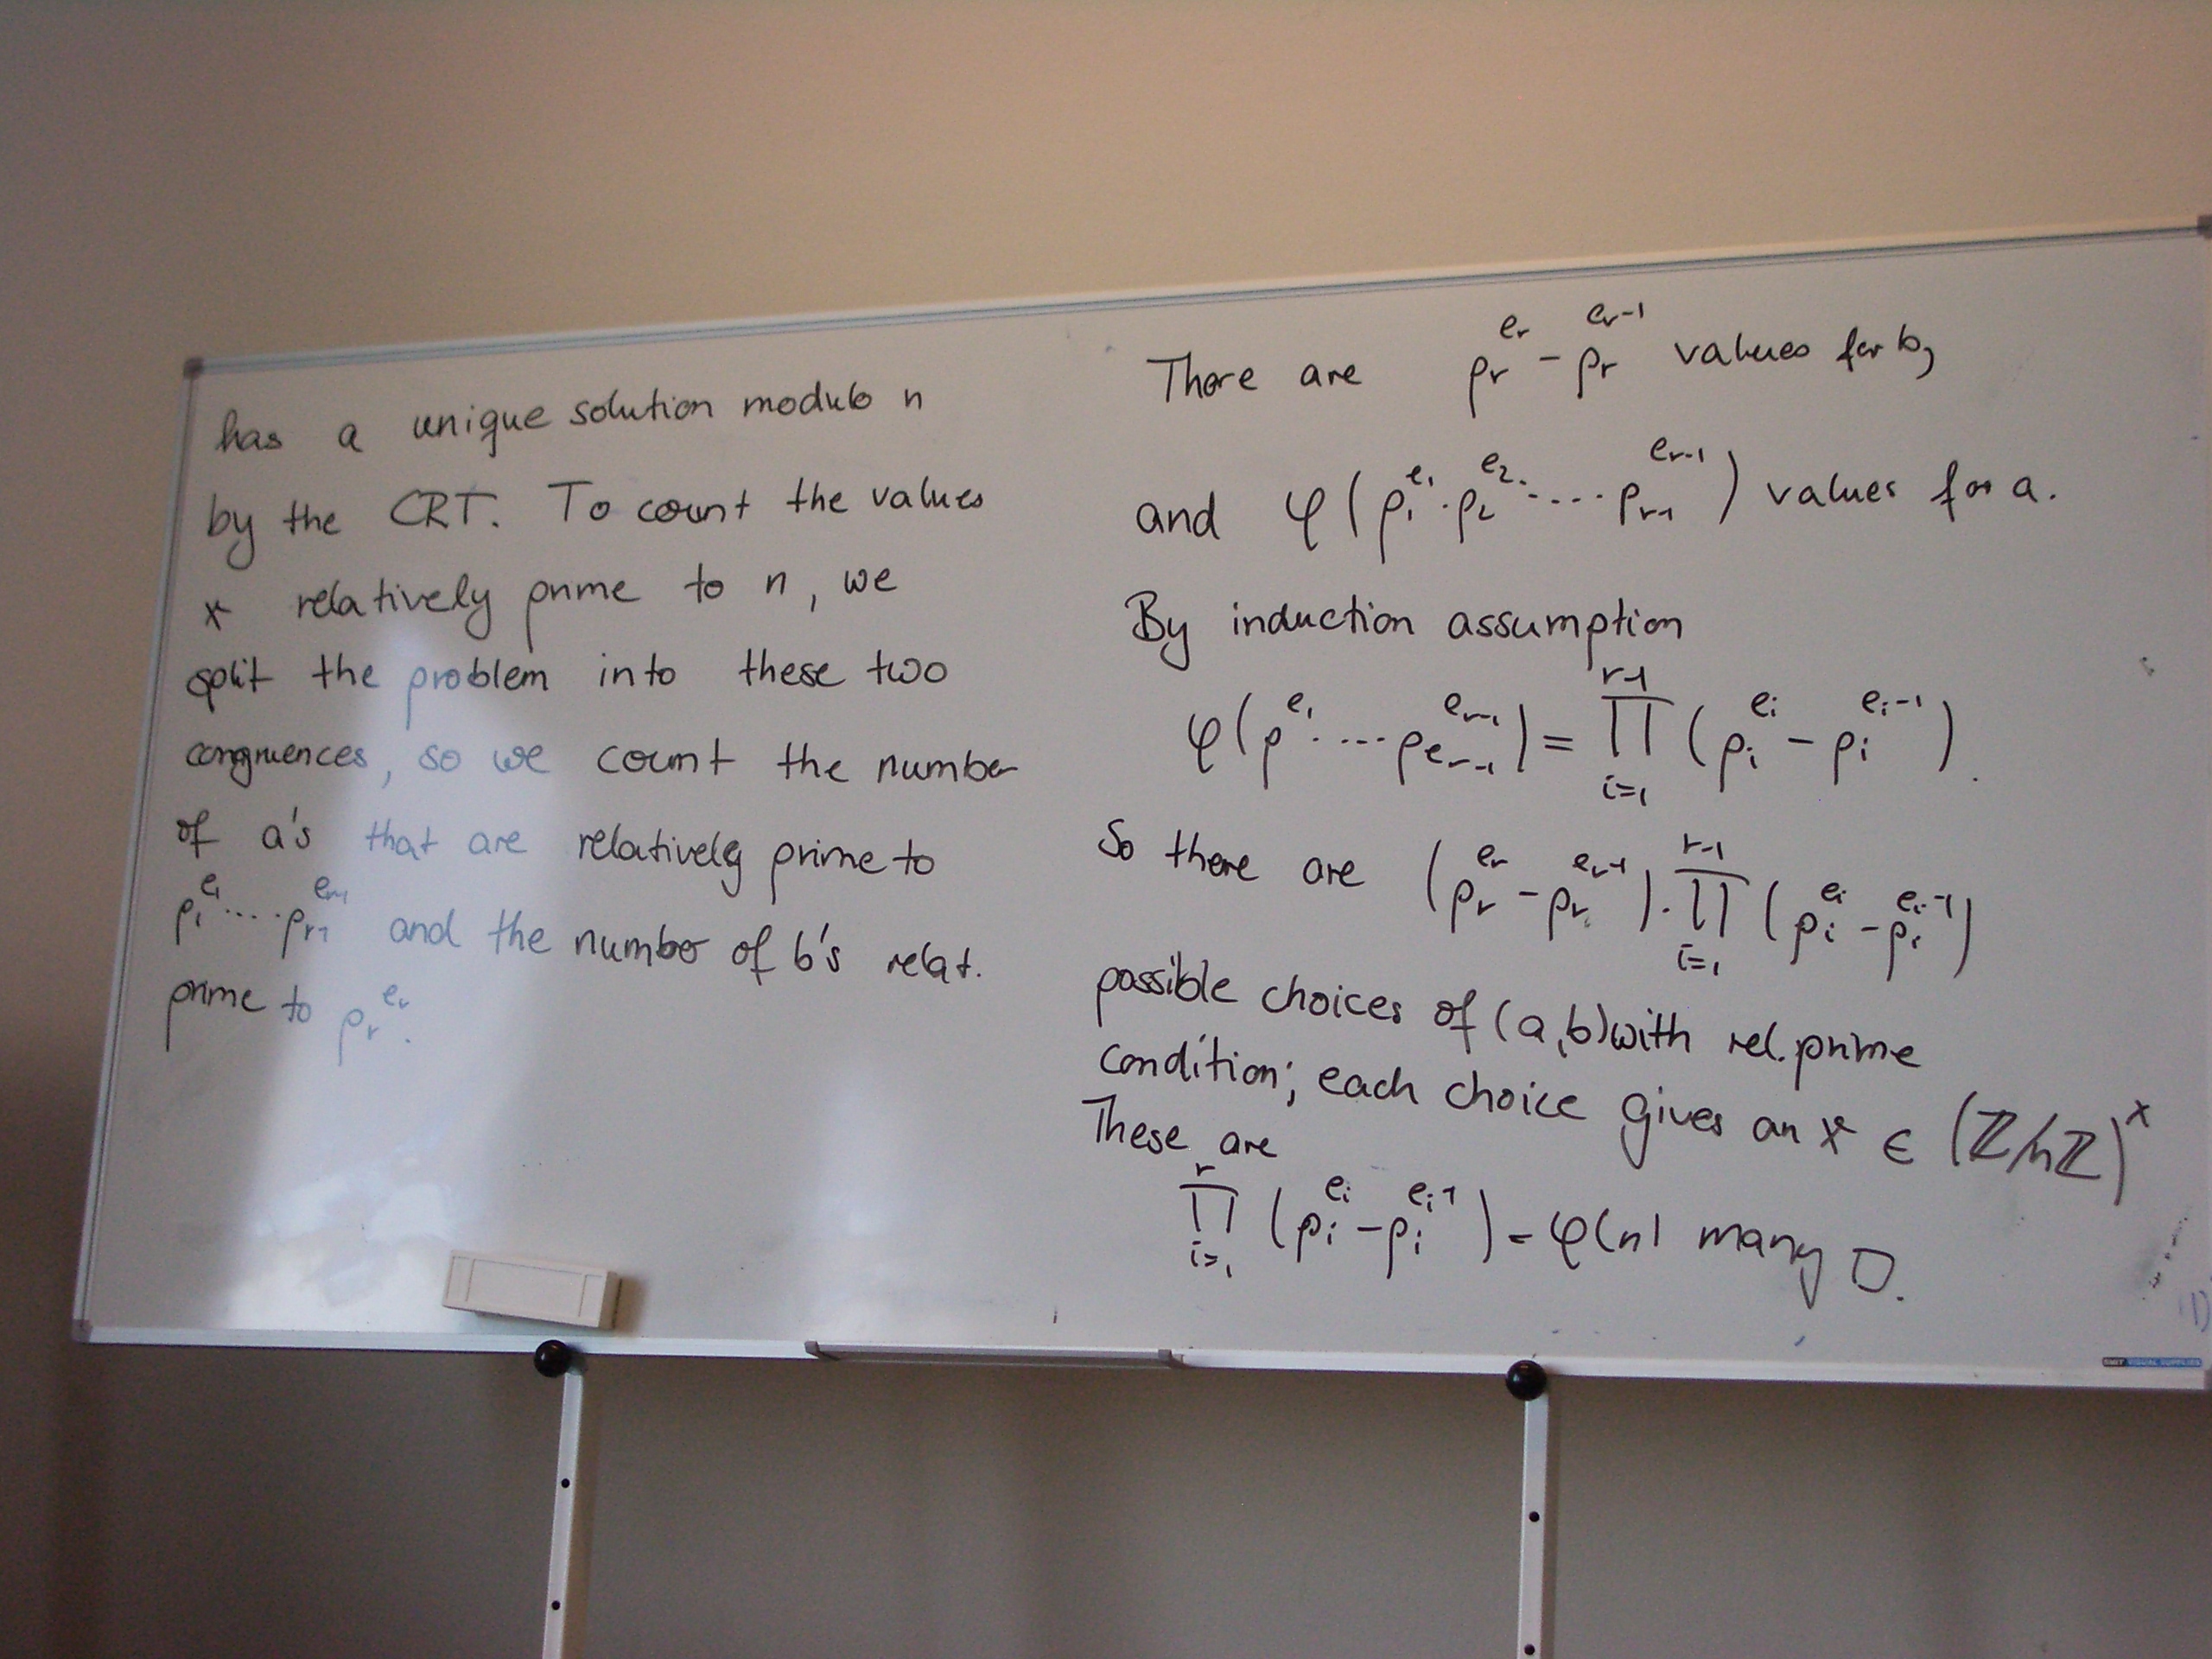 has a unique solution modulo n
by the CRT. To count the values
x relatively prime to n, we
split the problem into these two
congruences, so we count the number
of a's that are relatively prime to
p₁^{e₁}.....p_{r-1}^{e_{r-1}} and the number of b's relat.
prime to p_r^{e_r}.
There are p_r^{e_r} - p_r^{e_r-1} values for b,
and φ(p₁^{e₁}·p₂^{e₂}·....·p_{r-1}^{e_{r-1}}) values for a.
By induction assumption
φ(p^{e₁}·....p_{e_{r-1}}^{e_{r-1}}) = ∏_{i=1}^{r-1} (p_i^{e_i} - p_i^{e_i-1}).
So there are (p_r^{e_r} - p_r^{e_r-1})·∏_{i=1}^{r-1} (p_i^{e_i} - p_i^{e_i-1})
possible choices of (a,b) with rel. prime
condition; each choice gives an x ∈ (ℤ/nℤ)^×
These are
∏_{i=1}^{r} (p_i^{e_i} - p_i^{e_i-1}) = φ(n) many □.
SMIT VISUAL SUPPLIES